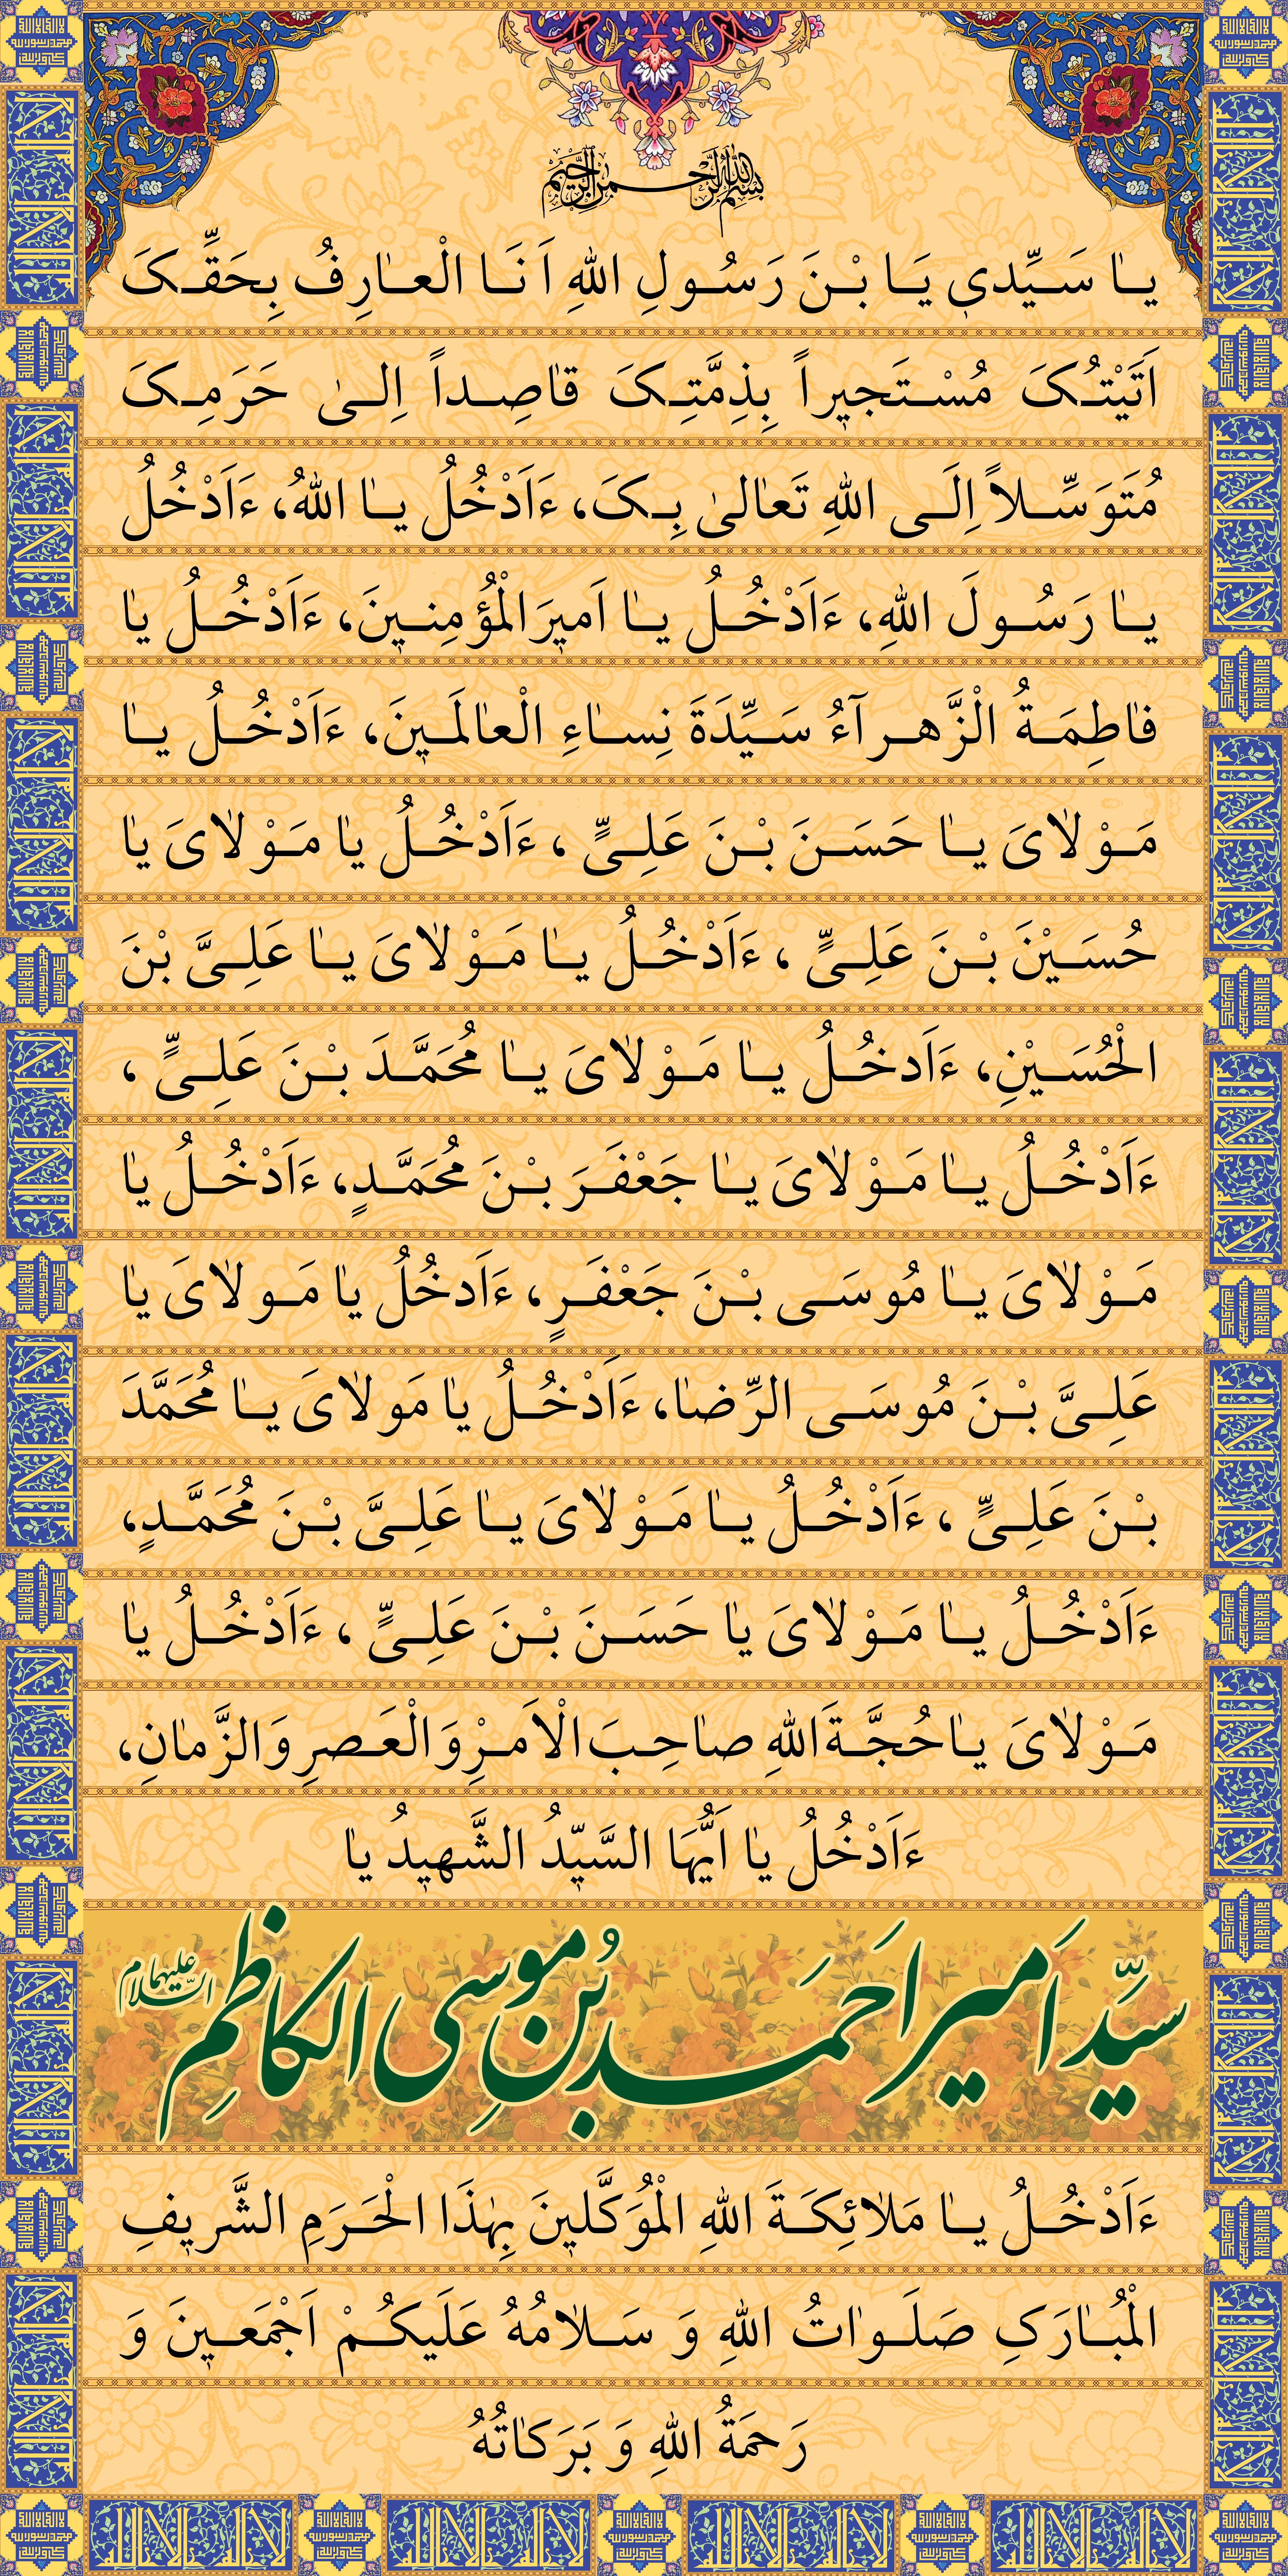 بِسْمِ اللهِ الرَّحْمٰنِ الرَّحيمِ
يـٰا سَـيِّدي يَـا بْـنَ رَسُـولِ اللهِ اَنَـا الْعـٰارِفُ بِحَقِّـكَ
اَتَيْتُـكَ مُسْـتَجيراً بِذِمَّتِـكَ قٰاصِـداً اِلـىٰ حَرَمِـكَ
مُتَوَسِّـلاً اِلَـى اللهِ تَعٰالىٰ بِـكَ، ءَاَدْخُلُ يـٰا اللهُ، ءَاَدْخُلُ
يـٰا رَسُـولَ اللهِ، ءَاَدْخُـلُ يـٰا اَميرَالْمُؤْمِنـينَ، ءَاَدْخُـلُ يٰا
فٰاطِمَـةُ الْزَّهـرآءُ سَـيِّدَةَ نِسـٰاءِ الْعٰالَمَـينَ، ءَاَدْخُـلُ يـٰا
مَـوْلاٰىَ يـٰا حَسَـنَ بْـنَ عَلِـىٍّ ، ءَاَدْخُـلُ يٰا مَـوْلاٰىَ يٰا
حُسَـيْنَ بْـنَ عَلِـىٍّ ، ءَاَدْخُـلُ يـٰا مَـوْلاٰىَ يـٰا عَلِـىَّ بْنَ
الْحُسَـيْنِ، ءَاَدخُـلُ يـٰا مَـوْلاٰىَ يـٰا مُحَمَّـدَ بْـنَ عَلِـىٍّ ،
ءَاَدْخُـلُ يـٰا مَـوْلاٰىَ يـٰا جَعْفَـرَ بْـنَ مُحَمَّـدٍ، ءَاَدْخُـلُ يٰا
مَـوْلاٰىَ يـٰا مُوسَـى بْـنَ جَعْفَـرٍ، ءَاَدخُلُ يٰا مَـولاٰىَ يٰا
عَلِـىَّ بْـنَ مُوسَـى الرِّضٰا، ءَاَدْخُـلُ يٰا مَولاٰىَ يـٰا مُحَمَّدَ
بْـنَ عَلِـىٍّ ، ءَاَدْخُـلُ يـٰا مَـوْلاٰىَ يـٰا عَلِـىَّ بْـنَ مُحَمَّـدٍ،
ءَاَدْخُـلُ يـٰا مَـوْلاٰىَ يٰا حَسَـنَ بْـنَ عَلِـىٍّ ، ءَاَدْخُـلُ يٰا
مَـوْلاٰىَ يـٰا حُجَّـةَ اللهِ صٰاحِـبَ الْاَمـرِْ وَ الْعَـصرِ وَ الزَّمٰانِ،
ءَاَدْخُلُ يٰا اَيُّهَا السَّيِّدُ الشَّهيدُ يٰا
سَيِّد اَمير اَحمَـد بْنِ مُوسَى الكاظِم عليهما السّلام
ءَاَدْخُـلُ يـٰا مَلاٰئِكَـةَ اللهِ الْمُوَكَّلينَ بِهٰذَا الْحَـرَمِ الشَّريفِ
الْمُبـٰارَكِ صَلَـوٰاتُ اللهِ وَ سَـلاٰمُهُ عَلَيكُـمْ اَجْمَعـينَ وَ
رَحمَةُ اللهِ وَ بَرَكٰاتُهُ